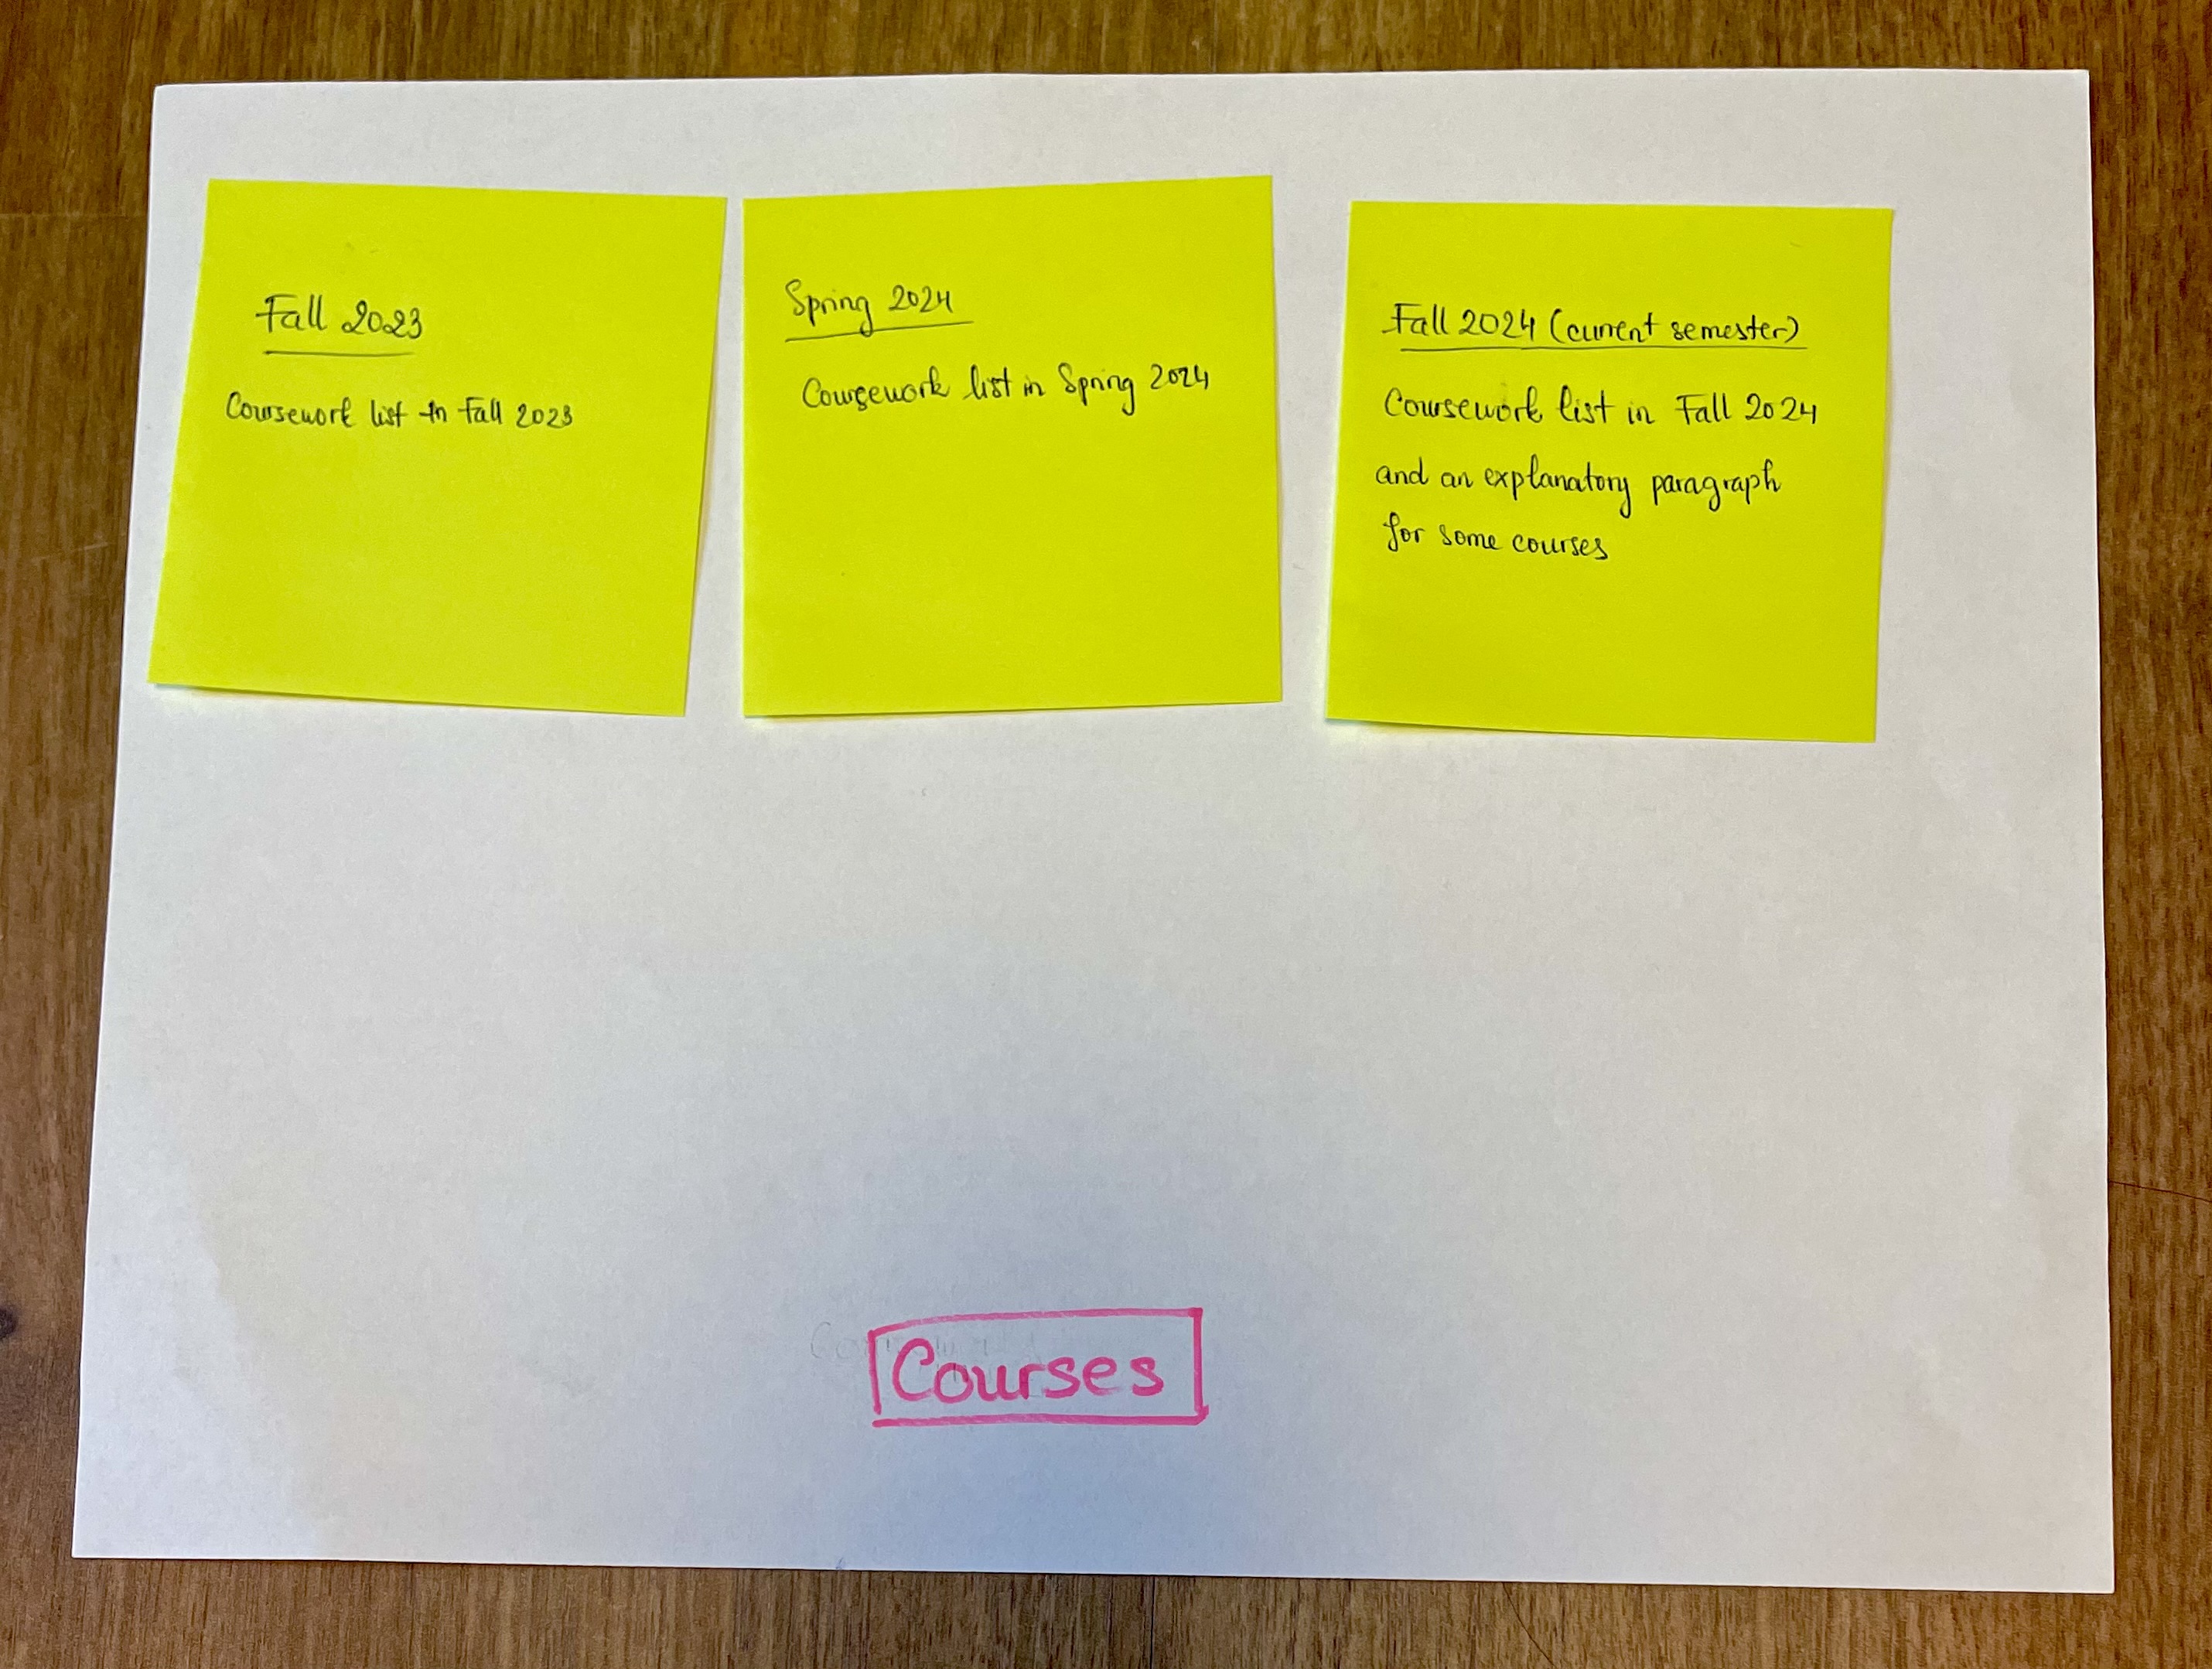 Fall 2023
Coursework list in Fall 2023
Spring 2024
Coursework list in Spring 2024
Fall 2024 (current semester)
Coursework list in Fall 2024
and an explanatory paragraph
for some courses
Courses